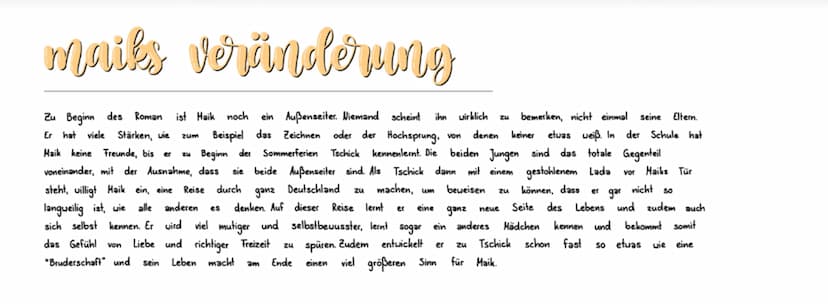 maiks veränderung
Zu Beginn des Roman ist Maik noch ein Außenseiter. Niemand scheint ihn wirklich zu bemerken, nicht einmal seine Eltern.
Er hat viele Stärken, wie zum Beispiel das Zeichnen oder der Hochsprung, von denen keiner etwas weiß. In der Schule hat
Maik keine Freunde, bis er zu Beginn der Sommerferien Tschick kennenlernt. Die beiden Jungen sind das totale Gegenteil
voneinander, mit der Ausnahme, dass sie beide Außenseiter sind. Als Tschick dann mit einem gestohlenem Lada vor Maiks Tür
steht, willigt Maik ein, eine Reise durch ganz Deutschland zu machen, um beweisen zu können, dass er gar nicht so
langweilig ist, wie alle anderen es denken. Auf dieser Reise lernt er eine ganz neue Seite des Lebens und zudem auch
sich selbst kennen. Er wird viel mutiger und selbstbewusster, lernt sogar ein anderes Mädchen kennen und bekommt somit
das Gefühl von Liebe und richtiger Freizeit zu spüren. Zudem entwickelt er zu Tschick schon fast so etwas wie eine
"Bruderschaft" und sein Leben macht am Ende einen viel größeren Sinn für Maik.